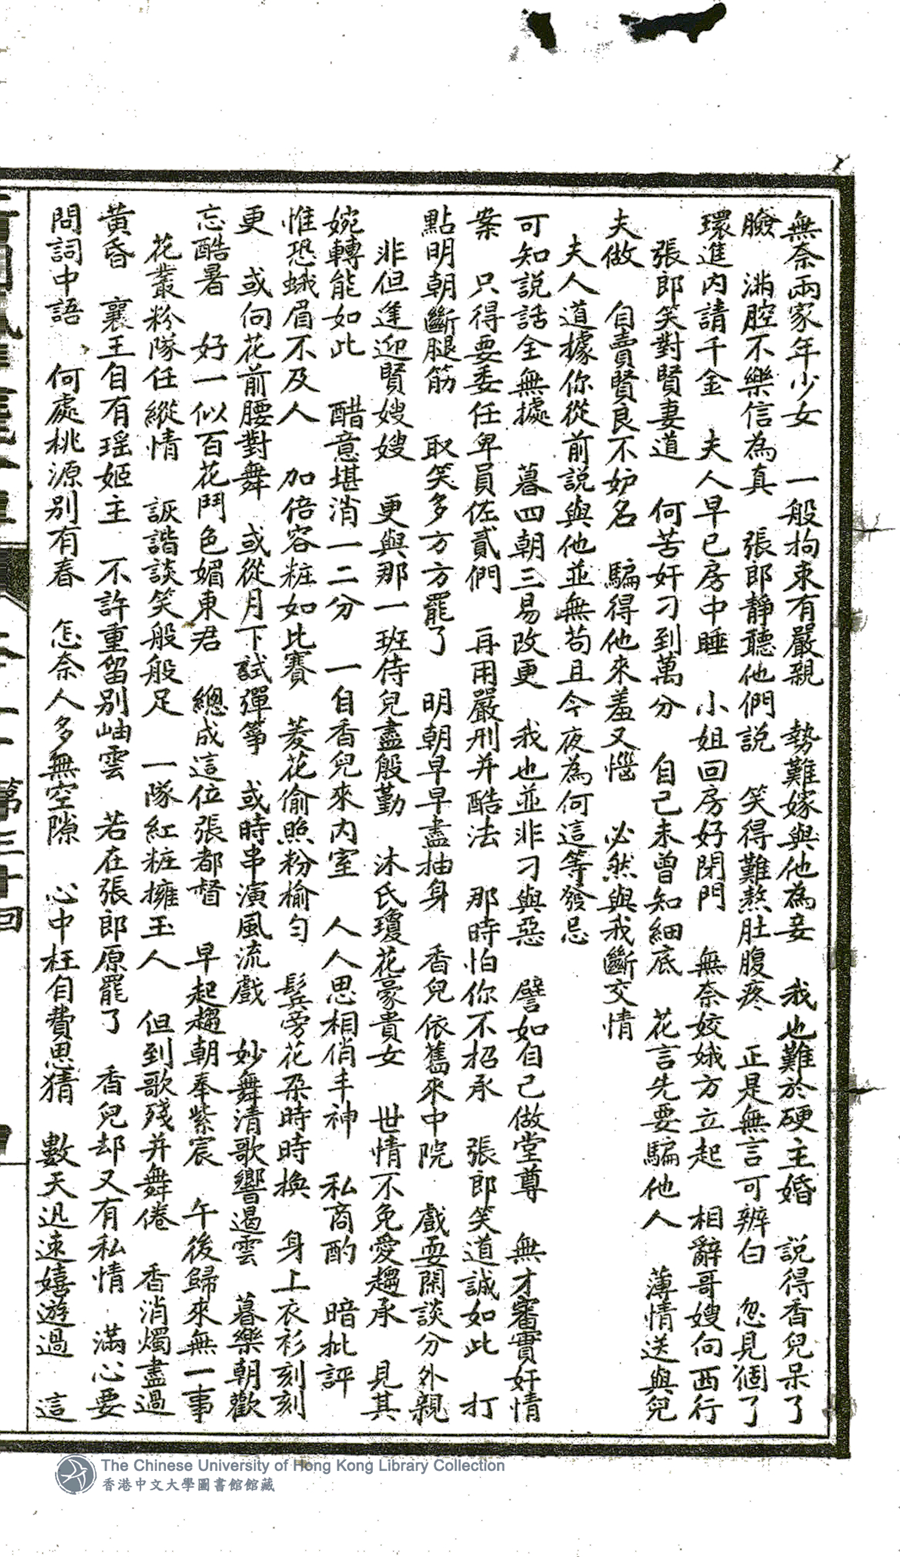 無奈兩家年少女　一般拘束有嚴親　勢難嫁與他為妾　我也難於硬主婚　說得香兒呆了
臉　滿腔不樂信為真　張郎靜聽他們說　笑得難熬肚腹疼　正是無言可辨白　忽見個了
環進內請千金　夫人早已房中睡　小姐回房好閉門　無奈姣娥方立起　相辭哥嫂向西行
張郎笑對賢妻道　何苦奸刁到萬分　自己未曾知細底　花言先要騙他人　薄情送與兒
夫做　自賣賢良不妒名　騙得他來羞又惱　必然與我斷交情
夫人道據你從前説與他並無苟且今夜為何這等發忌
可知説話全無據　暮四朝三易改更　我也並非刁與惡　譬如自己做堂尊　無才審實奸情
案　只得要委任卑員佐貳們　再用嚴刑并酷法　那時怕你不招承　張郎笑道誠如此　打
點明朝斷腿筋　取笑多方方罷了　明朝早早盡抽身　香兒依舊來中院　戲耍閑談分外親
非但進迎賢嫂嫂　更與那一班侍兒盡殷勤　沐氏瓊花豪貴女　世情不免愛趨承　見其
婉轉能如此　醋意堪消一二分　一自香兒來内室　人人思相俏丰神　私商酌　暗批評
惟恐蛾眉不及人　加倍容粧如比賽　菱花偷照粉榆勻　鬂旁花朶時時換　身上衣衫刻刻
更　或向花前腰對舞　或從月下試彈箏　或時串演風流戲　妙舞清歌響遏雲　暮樂朝歡
忘酷暑　好一似百花鬥色媚東君　總成這位張都督　早起趨朝奉紫宸　午後歸來無一事
花叢粉隊任縱情　詼諧談笑般般足　一隊紅粧擁玉人　但到歌殘并舞倦　香消燭盡過
黃昏　襄王自有瑶姬主　不許重留别岫雲　若在張郎原罷了　香兒却又有私情　滿心要
問詞中語　何處桃源别有春　怎奈人多無空隙　心中枉自費思猜　數天迅速嬉遊過　這
第三十回
The Chinese University of Hong Kong Library Collection
香港中文大學圖書館館藏